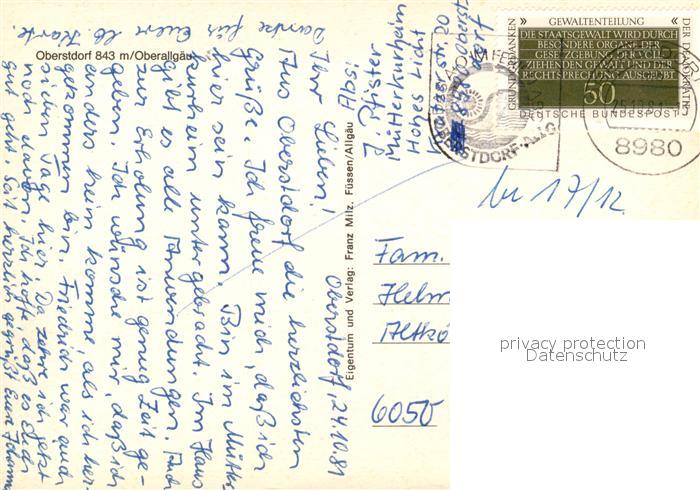 Oberstdorf 843 m/Oberallgäu
Danke für Eure lb. Karte.
Oberstdorf, 24.10.81
Ihr Lieben!
Aus Oberstdorf die herzlichsten
Grüße. Ich freue mich, daß ich
hier sein kann. Bin im Mütter-
kurheim untergebracht. Im Haus
gibt es alle Anwendungen. Auch
zur Erholung ist genug Zeit ge-
geben. Ich wünsche mir, daß ich
anders heim komme, als ich her-
gekommen bin. Friedrich war auch
sieben Tage hier. Da zehre ich jetzt
noch davon. Ich hoffe, daß es Euch
gut geht. Seid herzlich gegrüßt Eure
Eigentum und Verlag: Franz Milz, Füssen/Allgäu
Mütterkurheim
Hohes Licht
20
» GEWALTENTEILUNG «
DIE STAATSGEWALT WIRD DURCH
BESONDERE ORGANE DER
GESETZGEBUNG, DER VOLL-
ZIEHENDEN GEWALT UND DER
RECHTSPRECHUNG AUSGEÜBT
GRUNDGEDANKEN
DER DEMOKRATIE
50
DEUTSCHE BUNDESPOST
OBERSTDORF · ALLG
25.10.81
8980
bis 17/12.
Fam.
Helm
Altkö
6050
privacy protection
Datenschutz